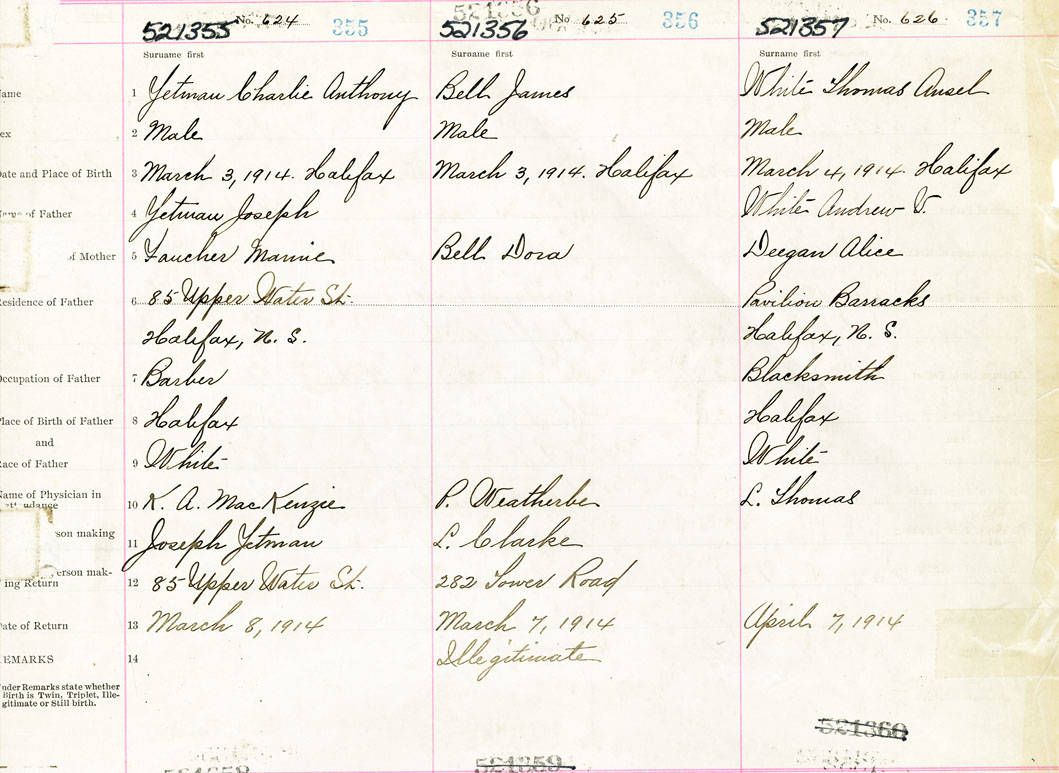 521356
521355 No. 624 355 521356 No 625 356 521357 No. 626 357
Surname first Surname first Surname first
ame 1 Yetman Charlie Anthony Bell James White Thomas Ansel
ex 2 Male Male Male
Date and Place of Birth 3 March 3, 1914. Halifax March 3, 1914. Halifax March 4, 1914. Halifax
of Father 4 Yetman Joseph White Andrew V.
of Mother 5 Faucher Mamie Bell Dora Deegan Alice
Residence of Father 6 85 Upper Water St. Pavilion Barracks
Halifax, N. S. Halifax, N. S.
Occupation of Father 7 Barber Blacksmith
Place of Birth of Father 8 Halifax Halifax
and
Race of Father 9 White White
Name of Physician in
10 K. A. MacKenzie P. Weatherbe L. Thomas
son making
11 Joseph Yetman L. Clarke
erson mak-
ing Return 12 85 Upper Water St. 282 Tower Road
Date of Return 13 March 8, 1914 March 7, 1914 April 7, 1914
EMARKS 14 Illegitimate
nder Remarks state whether
Birth is Twin, Triplet, Ille-
gitimate or Still birth.
521360
521359